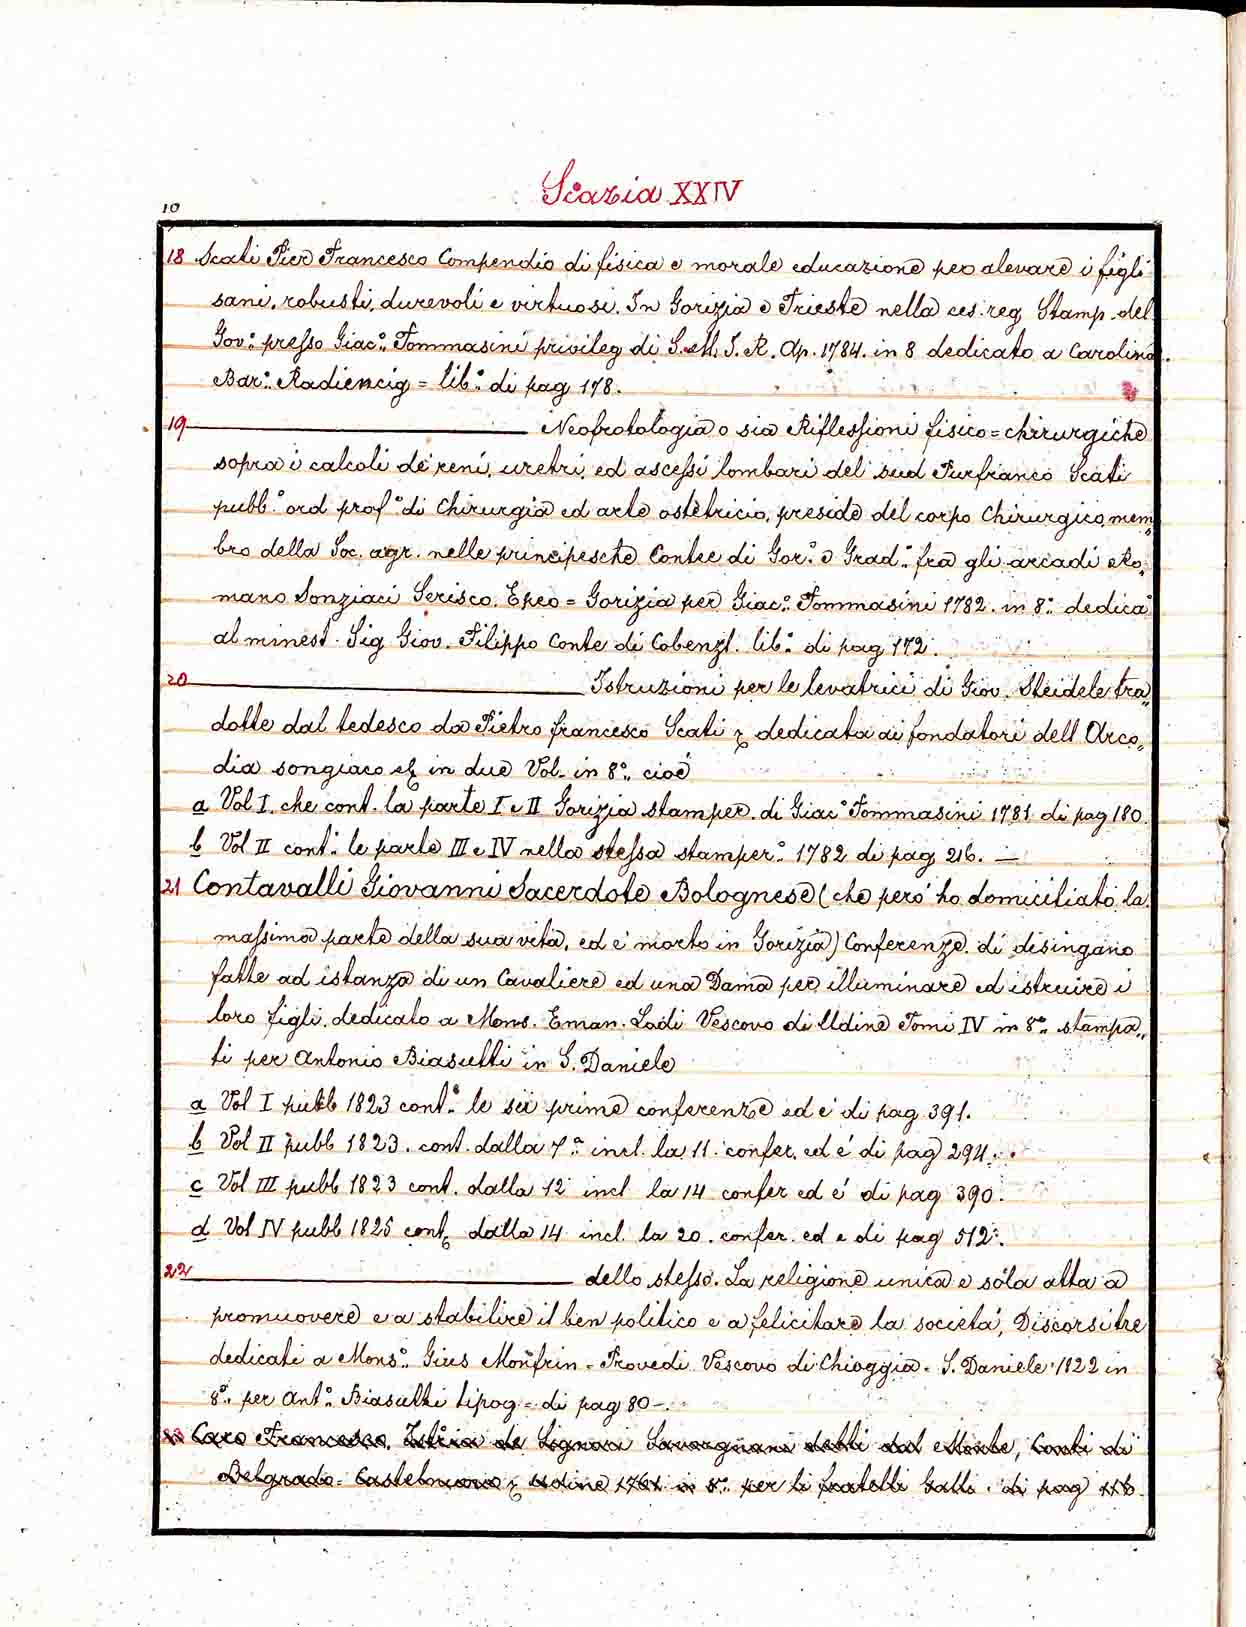 Scazia XXIV
10
18 Scati Pier Francesco Compendio di fisica e morale educazione per alevare i figli
sani, robusti, durevoli e virtuosi. In Gorizia e Trieste nella ces. reg Stamp. del
Gov.o presso Giac.o Tommasini privileg di S. M. I. R. Ap. 1784. in 8 dedicato a Carolina
Bar.a Radiencig = lib.o di pag 178.
19 Neofrotologia o sia Riflessioni fisico=chirurgiche
sopra i calcoli de reni, uretri, ed ascessi lombari del sud Pierfranco Scati
pubb.o ord prof.o di Chirurgia ed arte ostetricia, preside del corpo Chirurgico, mem„
bro della Soc. agr. nelle principesche Contee di Gor.a e Grad.a fra gli arcadi Ro„
mano Sonziaci Serisco. Epeo = Gorizia per Giac.o Tommasini 1782. in 8.o dedica.o
al minest. Sig Giov. Filippo Conte di Cobenzl. lib.o di pag 172.
20 Istruzioni per le levatrici di Giov. Steidele tra„
dotte dal tedesco da Pietro francesco Scati dedicata ai fondatori dell Arca„
dia songiaco in due Vol. in 8.o cioé
a Vol I. che cont. la parte I e II Gorizia stamper. di Giac.o Tommasini 1781. di pag 180.
b Vol II cont.e le parte III e IV nella stessa stamper.a 1782 di pag 216. —
21 Contavalli Giovanni Sacerdote Bolognese (che peró ho domiciliato la
massima parte della sua vita, ed e' morto in Gorizia) Conferenze di disingano
fatte ad istanza di un Cavaliere ed una Dama per illuminare ed istruire i
loro figli, dedicato a Mons. Eman. Lodi Vescovo di Udine Tomi IV in 8.o stampa„
ti per Antonio Biasutti in S. Daniele
a Vol I pubb 1823 cont.e le sei prime conferenze ed e' di pag 391.
b Vol II pubb 1823. cont. dalla 7.a incl. la 11. confer. ed é di pag 294.
c Vol III pubb 1823 cont. dalla 12 incl la 14 confer ed é di pag 390.
d Vol IV pubb 1825 cont. dalla 14 incl. la 20. confer. ed e di pag 512.
22 dello stesso. La religione unica e sola atta a
promuovere e a stabilire il ben politico e a felicitare la societá, Discorsi tre
dedicati a Mons.o Gius Monfrin = Provedi Vescovo di Chioggia. S. Daniele 1822 in
8.o per Ant.o Biasutti tipog = di pag 80 -.
23 Caro Francesco. Istoria de Signori Savorgnani detti dal Monte, Conti di
Belgrado. Castelnuovo Udine 1761 in 8.o per li fratelli Galli. di pag